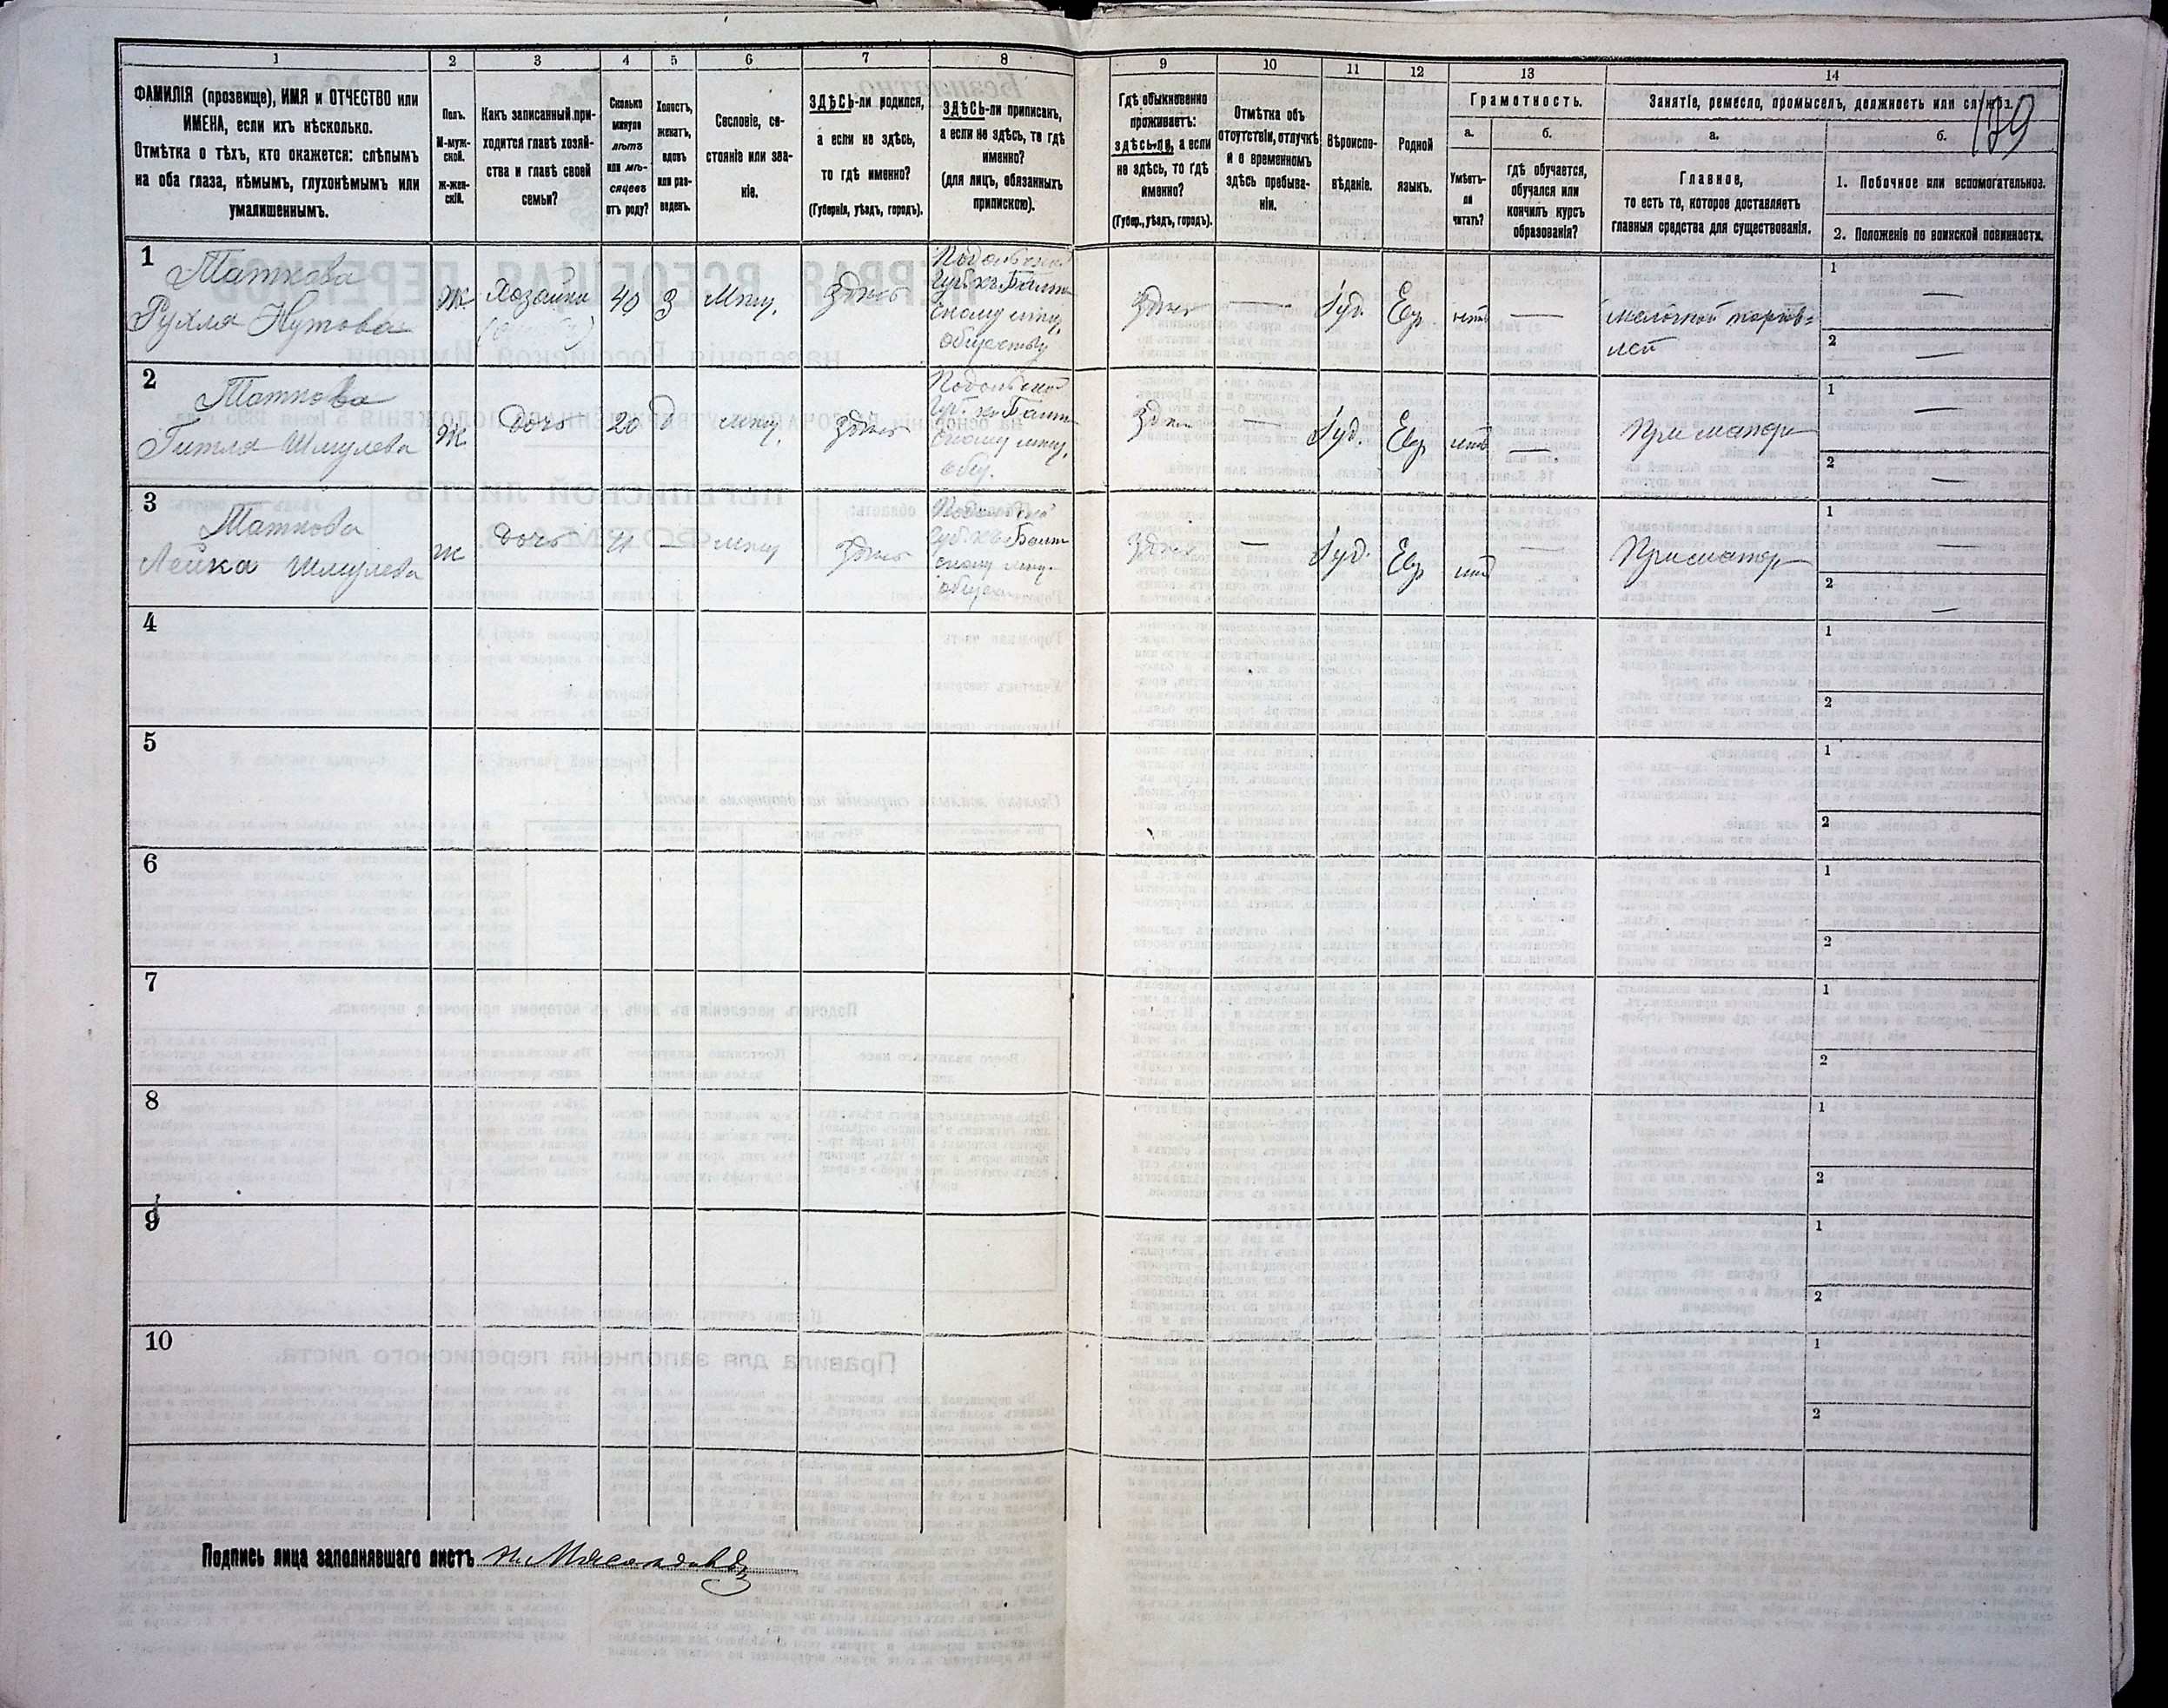 1 2 3 4 5 6 7 8 9 10 11 12 13 14
ФАМИЛІЯ (прозвище), ИМЯ и ОТЧЕСТВО или
ИМЕНА, если ихъ нѣсколько.
Отмѣтка о тѣхъ, кто окажется: слѣпымъ
на оба глаза, нѣмымъ, глухонѣмымъ или
умалишеннымъ.
Полъ.
М-муж-
ской.
ж-жен-
скій.
Какъ записанный при-
ходится главѣ хозяй-
ства и главѣ своей
семьи?
Сколько
минуло
лѣтъ
или мѣ-
сяцевъ
отъ роду?
Холостъ,
женатъ,
вдовъ
или раз-
веденъ.
Сословіе, со-
стояніе или зва-
ніе.
ЗДѢСЬ-ли родился,
а если не здѣсь,
то гдѣ именно?
(Губернія, уѣздъ, городъ).
ЗДѢСЬ-ли приписанъ,
а если не здѣсь, то гдѣ
именно?
(для лицъ, обязанныхъ
припискою).
Гдѣ обыкновенно
проживаетъ:
здѣсь-ли, а если
не здѣсь, то гдѣ
именно?
(Губер., уѣздъ, городъ).
Отмѣтка объ
отсутствіи, отлучкѣ
и о временномъ
здѣсь пребыва-
ніи.
Вѣроиспо-
вѣданіе.
Родной
языкъ.
Грамотность.
а.
Умѣетъ-
ли
читать?
б.
гдѣ обучается,
обучался или
кончилъ курсъ
образованія?
Занятіе, ремесло, промыселъ, должность или служба.
а.
Главное,
то есть то, которое доставляетъ
главныя средства для существованія.
б.
1. Побочное или вспомогательное.
2. Положеніе по воинской повинности.
139
1
Таткова
Рухля Нутова
Ж Хозяйка 40 З Мѣщ. Здѣсь
Подольской
Губ. къ Балт
скому мѣщ.
обществу
Здѣсь — Іуд. Евр нѣтъ —
мелочной торгов-
лей
1 —
2 —
2
Таткова
Гитля Шмулева
Ж. Дочь 20 д мѣщ. Здѣсь
Подольской
Губ. къ Балт
скому мѣщ.
общ.
Здѣсь — Іуд. Евр нѣтъ —
При матери
1 —
2 —
3
Таткова
Лейка Шмулева
Ж Дочь 11 — мѣщ Здѣсь
Подольской
Губ. къ Балт
скому мѣщ.
Здѣсь — Іуд. Евр нѣтъ —
При матери
1 —
2 —
4
1
2
5
1
2
6
1
2
7
1
2
8
1
2
9
1
2
10
1
2
Подпись лица заполнявшаго листъ